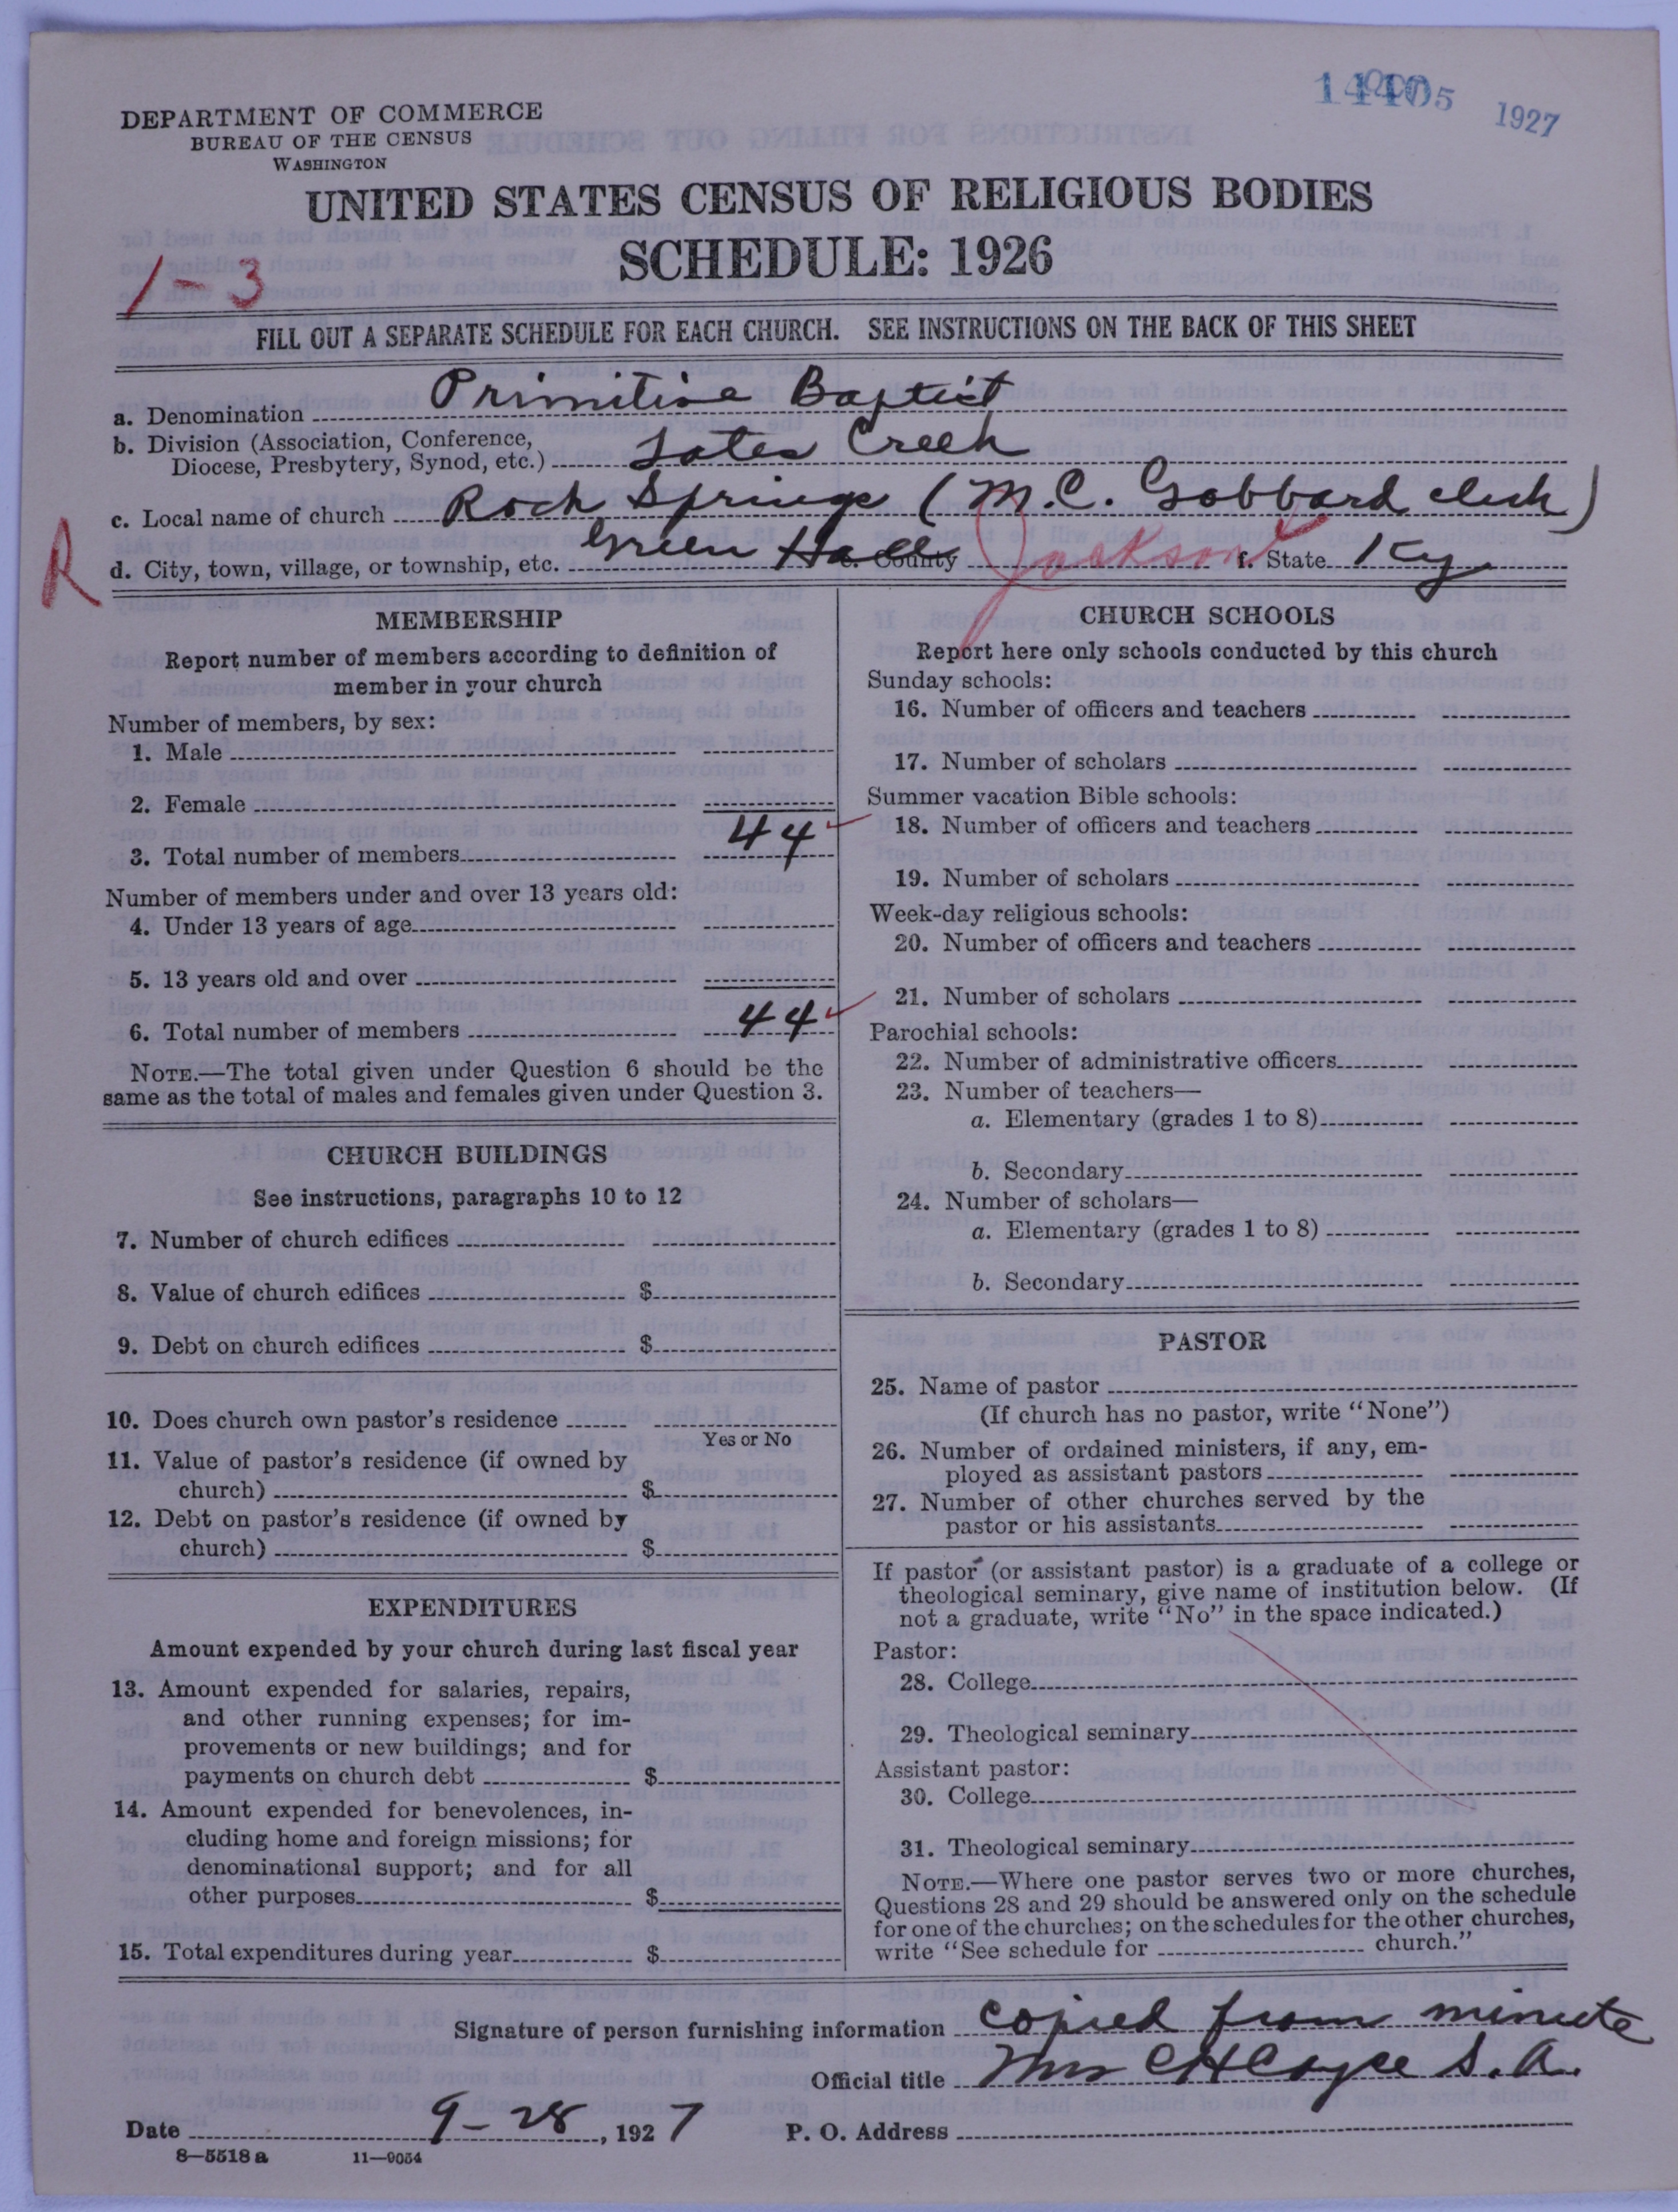 1927
DEPARTMENT OF COMMERCE
BUREAU OF THE CENSUS
WASHINGTON
UNITED STATES CENSUS OF RELIGIOUS BODIES
SCHEDULE: 1926
1-3
FILL OUT A SEPARATE SCHEDULE FOR EACH CHURCH. SEE INSTRUCTIONS ON THE BACK OF THIS SHEET
a. Denomination Primitive Baptist
b. Division (Association, Conference,
Diocese, Presbytery, Synod, etc.) Sates Creek
c. Local name of church Rock Springs (M.C. Gabbard clerk)
R
d. City, town, village, or township, etc. Green Hall e. County Jackson f. State Ky
MEMBERSHIP
Report number of members according to definition of
member in your church
Number of members, by sex:
1. Male
2. Female
3. Total number of members 44
Number of members under and over 13 years old:
4. Under 13 years of age
5. 13 years old and over
6. Total number of members 44
NOTE.—The total given under Question 6 should be the
same as the total of males and females given under Question 3.
CHURCH BUILDINGS
See instructions, paragraphs 10 to 12
7. Number of church edifices
8. Value of church edifices $
9. Debt on church edifices $
10. Does church own pastor's residence
Yes or No
11. Value of pastor's residence (if owned by
church) $
12. Debt on pastor's residence (if owned by
church) $
EXPENDITURES
Amount expended by your church during last fiscal year
13. Amount expended for salaries, repairs,
and other running expenses; for im-
provements or new buildings; and for
payments on church debt $
14. Amount expended for benevolences, in-
cluding home and foreign missions; for
denominational support; and for all
other purposes $
15. Total expenditures during year $
CHURCH SCHOOLS
Report here only schools conducted by this church
Sunday schools:
16. Number of officers and teachers
17. Number of scholars
Summer vacation Bible schools:
18. Number of officers and teachers
19. Number of scholars
Week-day religious schools:
20. Number of officers and teachers
21. Number of scholars
Parochial schools:
22. Number of administrative officers
23. Number of teachers—
a. Elementary (grades 1 to 8)
b. Secondary
24. Number of scholars—
a. Elementary (grades 1 to 8)
b. Secondary
PASTOR
25. Name of pastor
(If church has no pastor, write "None")
26. Number of ordained ministers, if any, em-
ployed as assistant pastors
27. Number of other churches served by the
pastor or his assistants
If pastor (or assistant pastor) is a graduate of a college or
theological seminary, give name of institution below. (If
not a graduate, write "No" in the space indicated.)
Pastor:
28. College
29. Theological seminary
Assistant pastor:
30. College
31. Theological seminary
NOTE.—Where one pastor serves two or more churches,
Questions 28 and 29 should be answered only on the schedule
for one of the churches; on the schedules for the other churches,
write "See schedule for church."
Signature of person furnishing information copied from minute
Official title Mrs C H Coyce S. A.
Date 9-28, 1927 P. O. Address
8—5518 a 11—9054